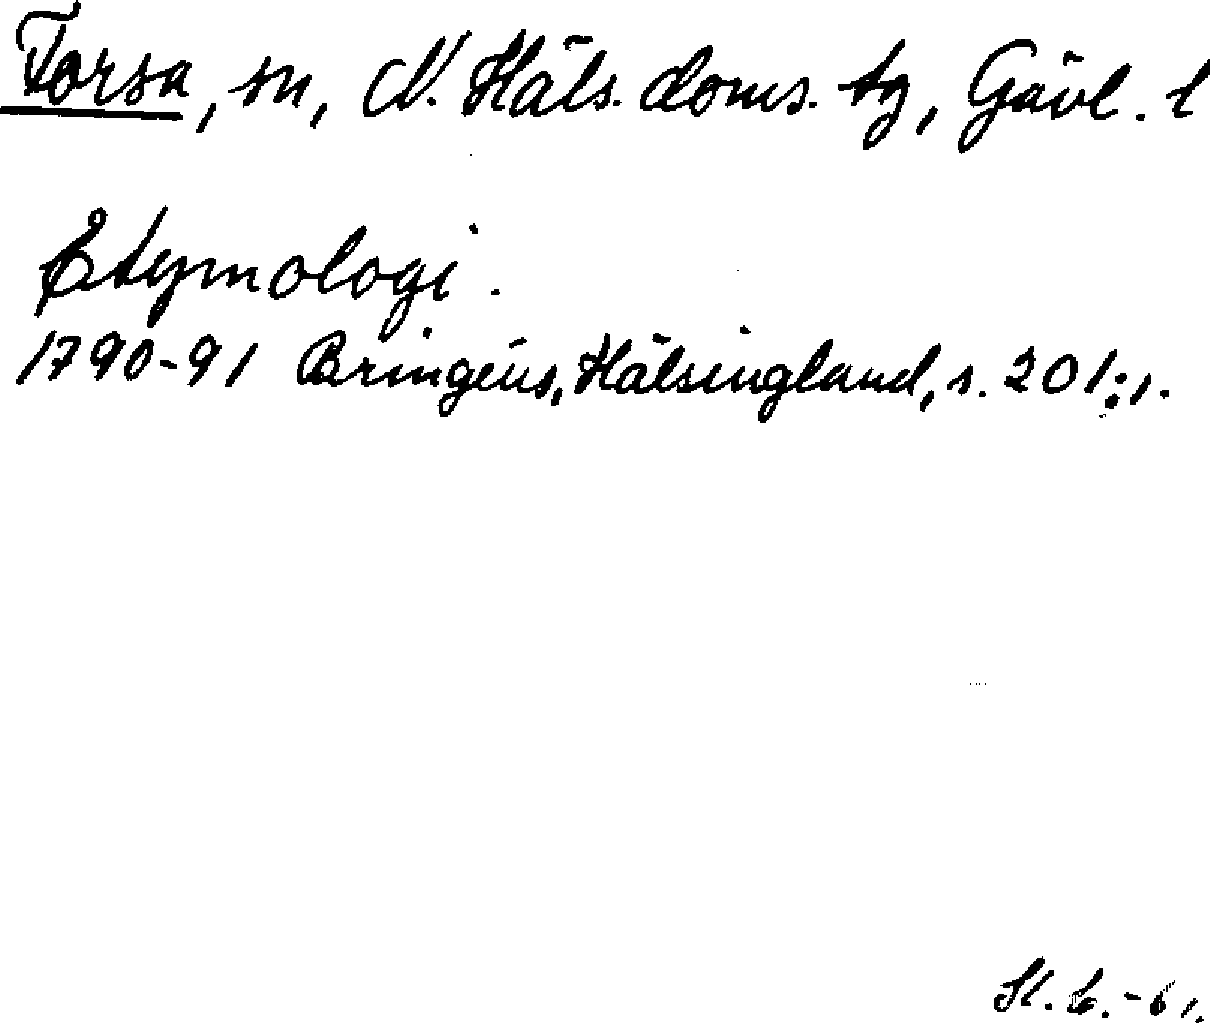 Forsa, sn, N. Häls. doms. tg, Gävl. l
Etymologi.
1790-91 Bringéus, Hälsingland, s. 201:1.
-61.